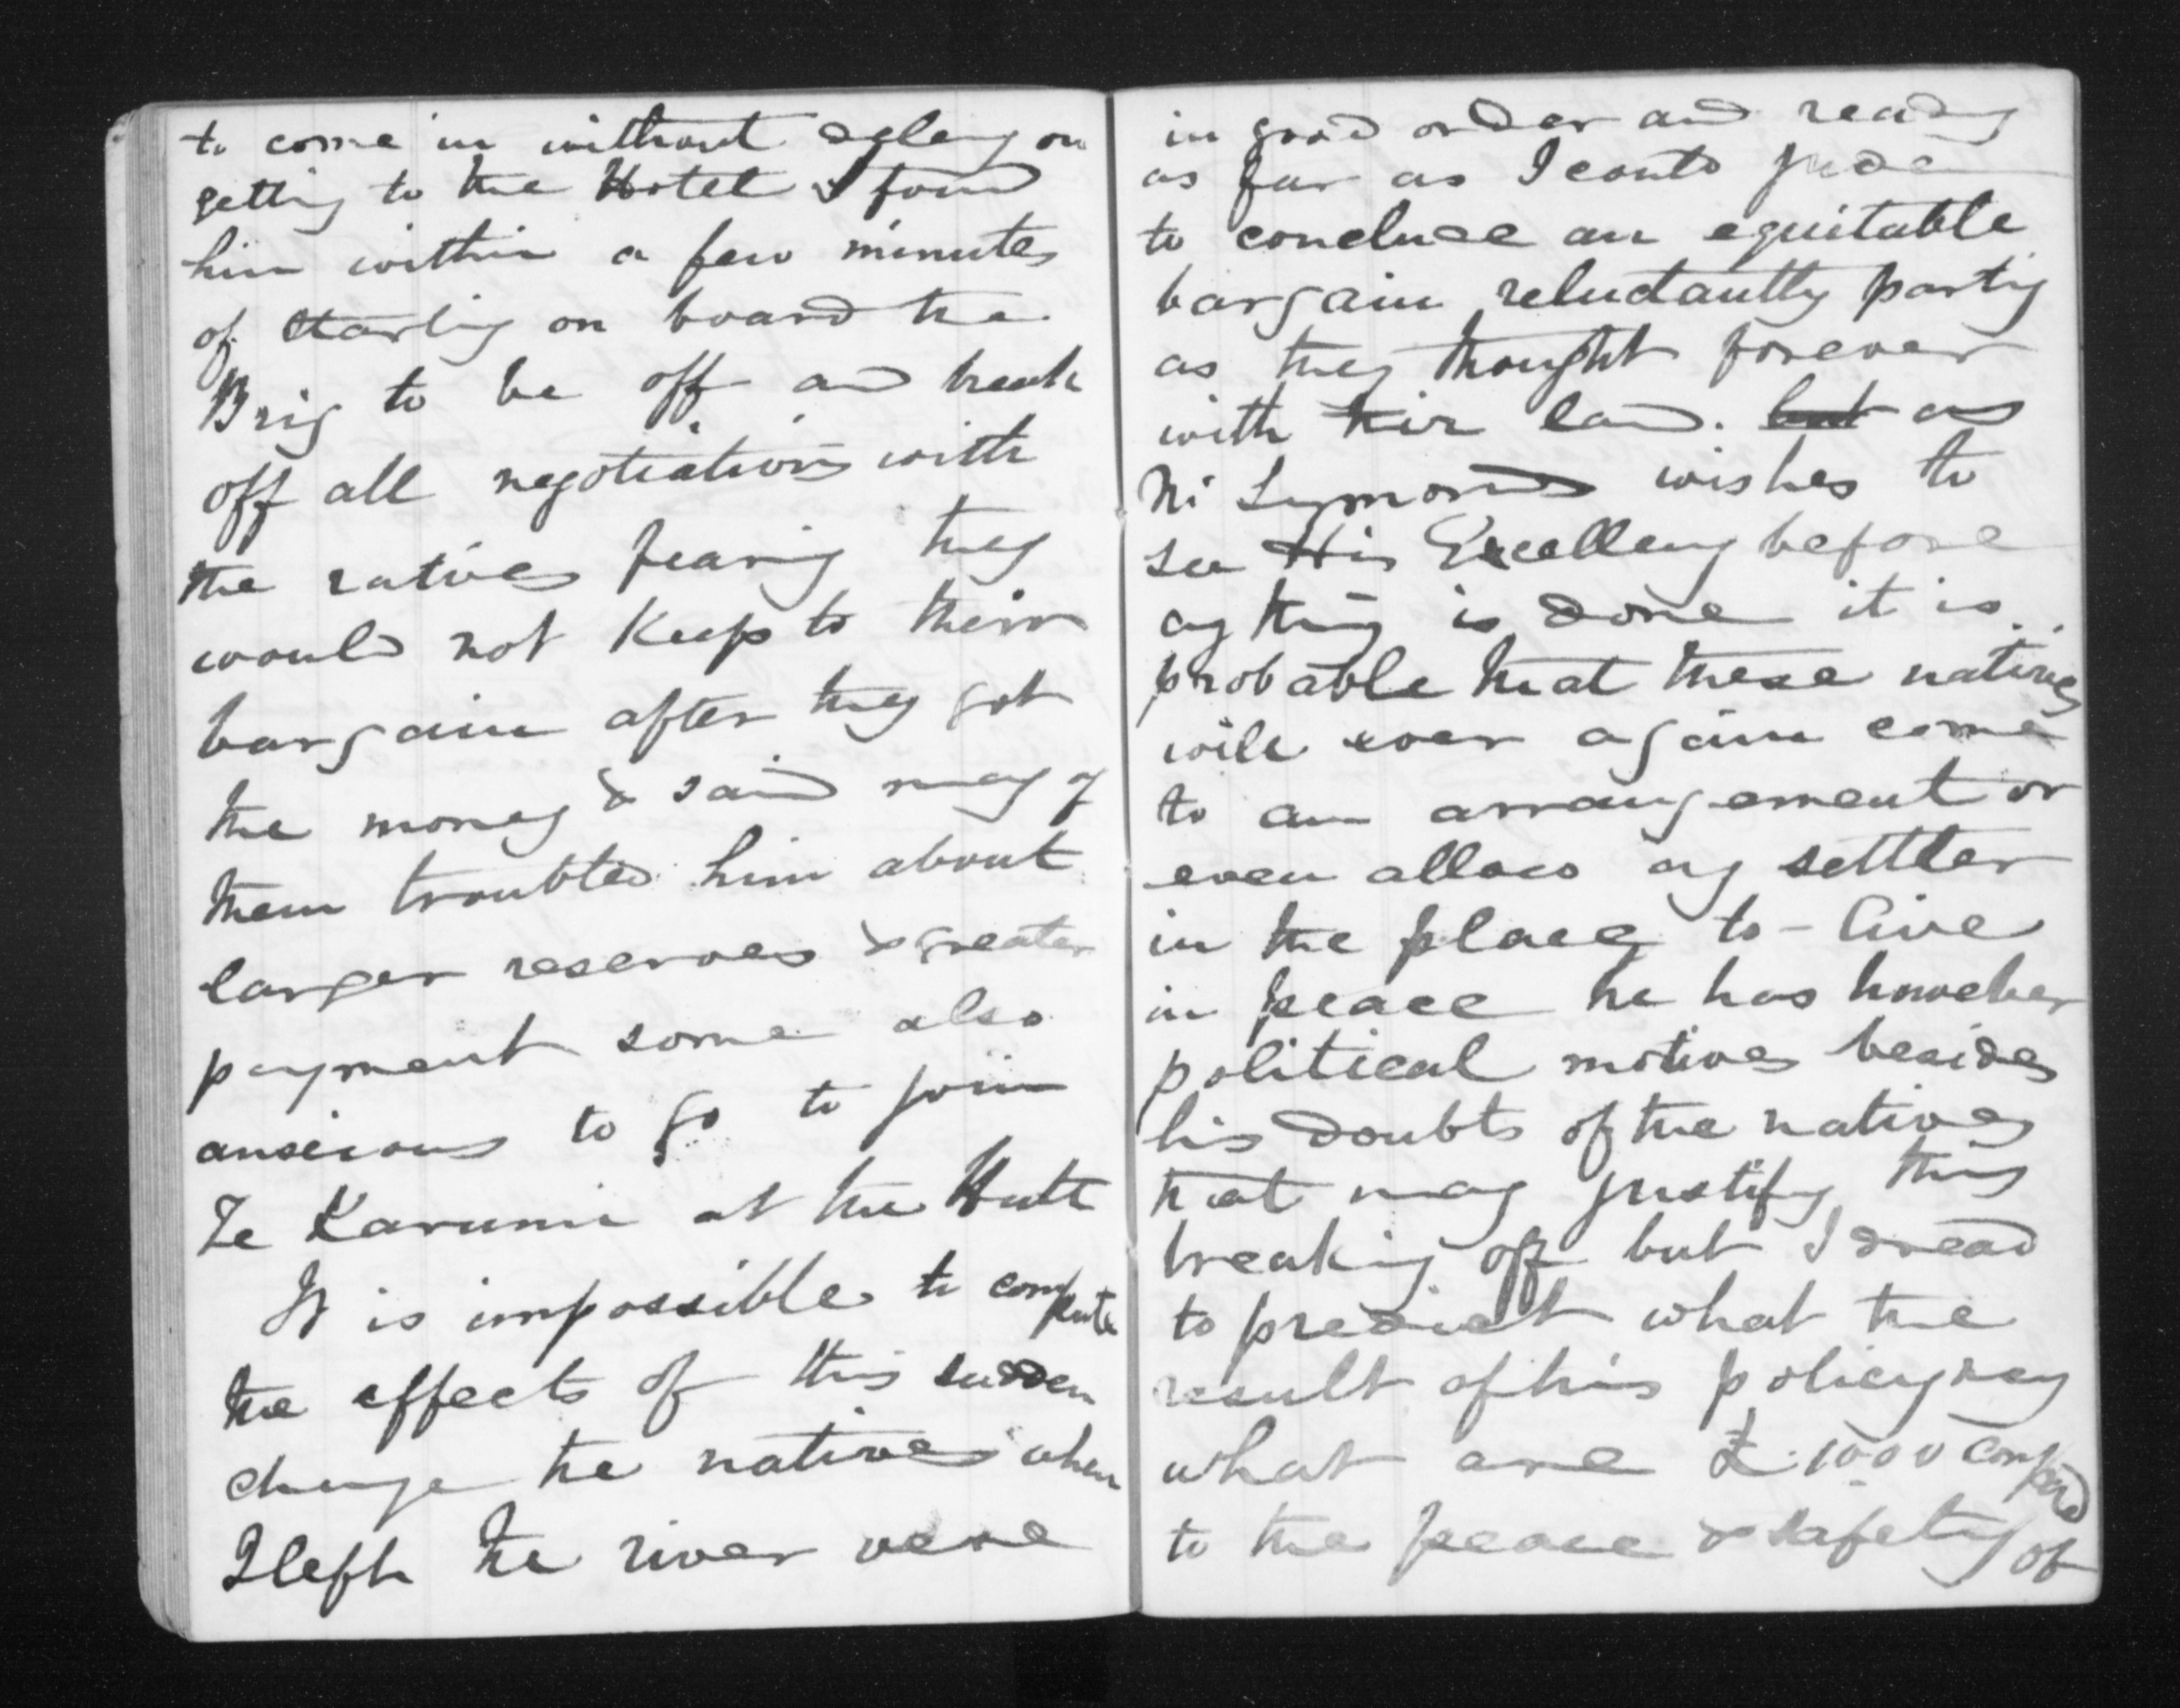 to come in without delay on
getting to the Hotel I found
him within a few minutes
of starting on board the
Brig to be off and break
off all negotiations with
the natives fearing they
would not Keep to their
bargain after they got
the money & said many of
them troubled him about
larger reserves & greater
payment some also
anxious to go to join
Te Karumu at the Hutt
It is impossible to compute
the effects of this sudden
change the natives when
I left the river were
in good order and ready
as far as I could judge
to conclude an equitable
bargain reluctantly parting
as they thought forever
with their land. but as
Mr Symonds wishes to
see His Excellency before
any thing is done it is
probable that these natives
will ever again come
to an arrangement or
even allow any settler
in the place to - live
in peace he has however
political motives besides
his doubts of the natives
that may justify this
breaking off but I dread
to predict what the
result of his policy may
what are £1000 compared
to the peace & safety of